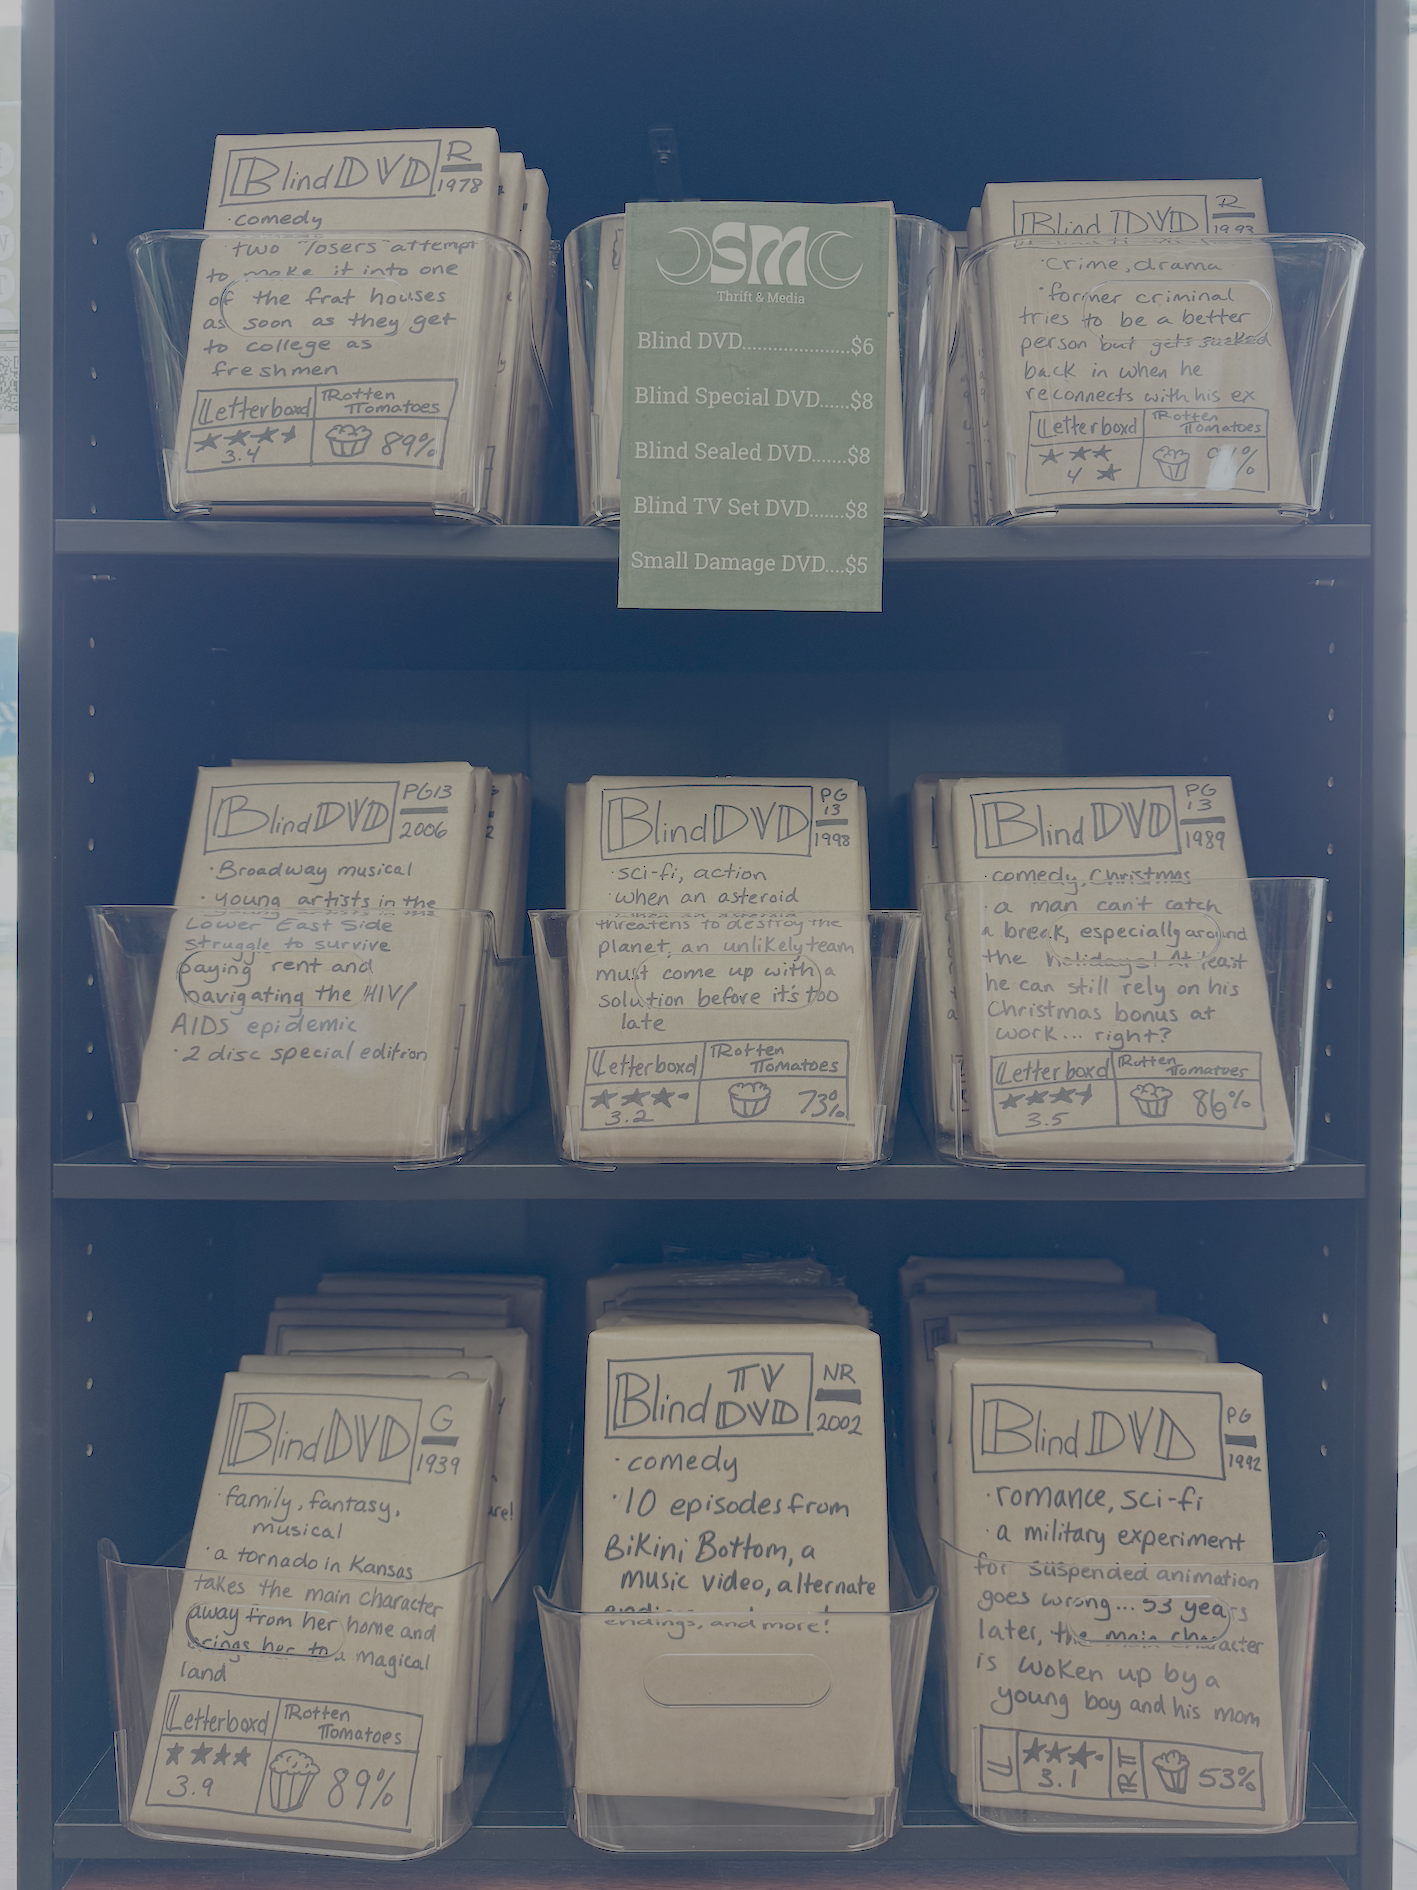 Blind DVD
R
1978
·comedy
·two "losers" attempt
to make it into one
of the frat houses
as soon as they get
to college as
freshmen
Letterboxd
Rotten
Tomatoes
3.4
89%
SMC
Thrift & Media
Blind DVD.....................$6
Blind Special DVD......$8
Blind Sealed DVD.......$8
Blind TV Set DVD.......$8
Small Damage DVD....$5
Blind DVD
R
1993
·Crime, drama
·former criminal
tries to be a better
person but gets sucked
back in when he
reconnects with his ex
Letterboxd
Rotten
Tomatoes
4
Blind DVD
PG13
2006
·Broadway musical
·young artists in the
Lower East Side
struggle to survive
paying rent and
navigating the HIV/
AIDS epidemic
·2 disc special edition
Blind DVD
PG
13
1998
·sci-fi, action
·when an asteroid
threatens to destroy the
planet, an unlikely team
must come up with a
solution before it's too
late
Letterboxd
Rotten
Tomatoes
3.2
73%
Blind DVD
PG
13
1989
·comedy, Christmas
·a man can't catch
a break, especially around
the holidays! At least
he can still rely on his
Christmas bonus at
work... right?
Letterboxd
Rotten
Tomatoes
3.5
86%
Blind DVD
G
1939
·family, fantasy,
musical
·a tornado in Kansas
takes the main character
away from her home and
brings her to a magical
land
Letterboxd
Rotten
Tomatoes
3.9
89%
Blind TV DVD
NR
2002
·comedy
·10 episodes from
Bikini Bottom, a
music video, alternate
endings, and more!
Blind DVD
PG
1992
·romance, sci-fi
·a military experiment
for suspended animation
goes wrong... 53 years
later, the main character
is woken up by a
young boy and his mom
L
3.1
RT
53%